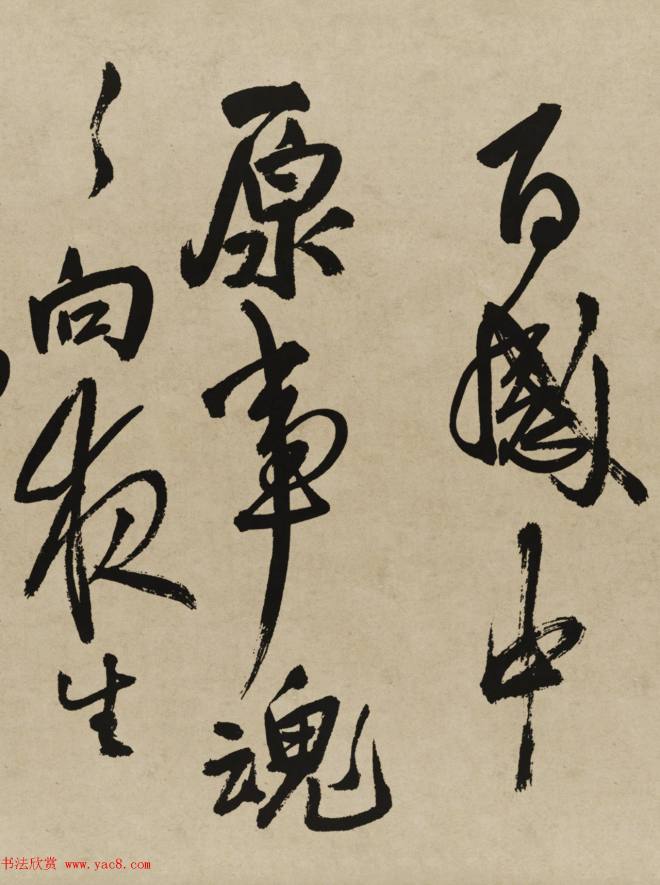 百感中
原事魂
々向夜生
书法欣赏 www.yac8.com